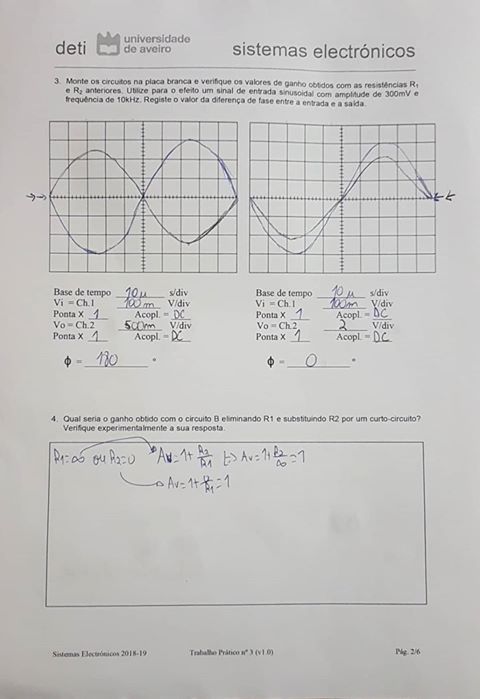 deti universidade de aveiro sistemas electrónicos
3. Monte os circuitos na placa branca e verifique os valores de ganho obtidos com as resistências R1
e R2 anteriores. Utilize para o efeito um sinal de entrada sinusoidal com amplitude de 300mV e
frequência de 10kHz. Registe o valor da diferença de fase entre a entrada e a saída.
Base de tempo 10µ s/div
Vi = Ch.1 100m V/div
Ponta X 1 Acopl. = DC
Vo = Ch.2 500m V/div
Ponta X 1 Acopl. = DC
ϕ = 180 °
Base de tempo 10µ s/div
Vi = Ch.1 100m V/div
Ponta X 1 Acopl. = DC
Vo = Ch.2 2 V/div
Ponta X 1 Acopl. = DC
ϕ = 0 °
4. Qual seria o ganho obtido com o circuito B eliminando R1 e substituindo R2 por um curto-circuito?
Verifique experimentalmente a sua resposta.
R1=∞ ou R2=0 Av=1+R2/R1 (=) Av=1+R2/∞=1
Av=1+0/R1=1
Sistemas Electrónicos 2018-19 Trabalho Prático nº 3 (v1.0) Pág. 2/6